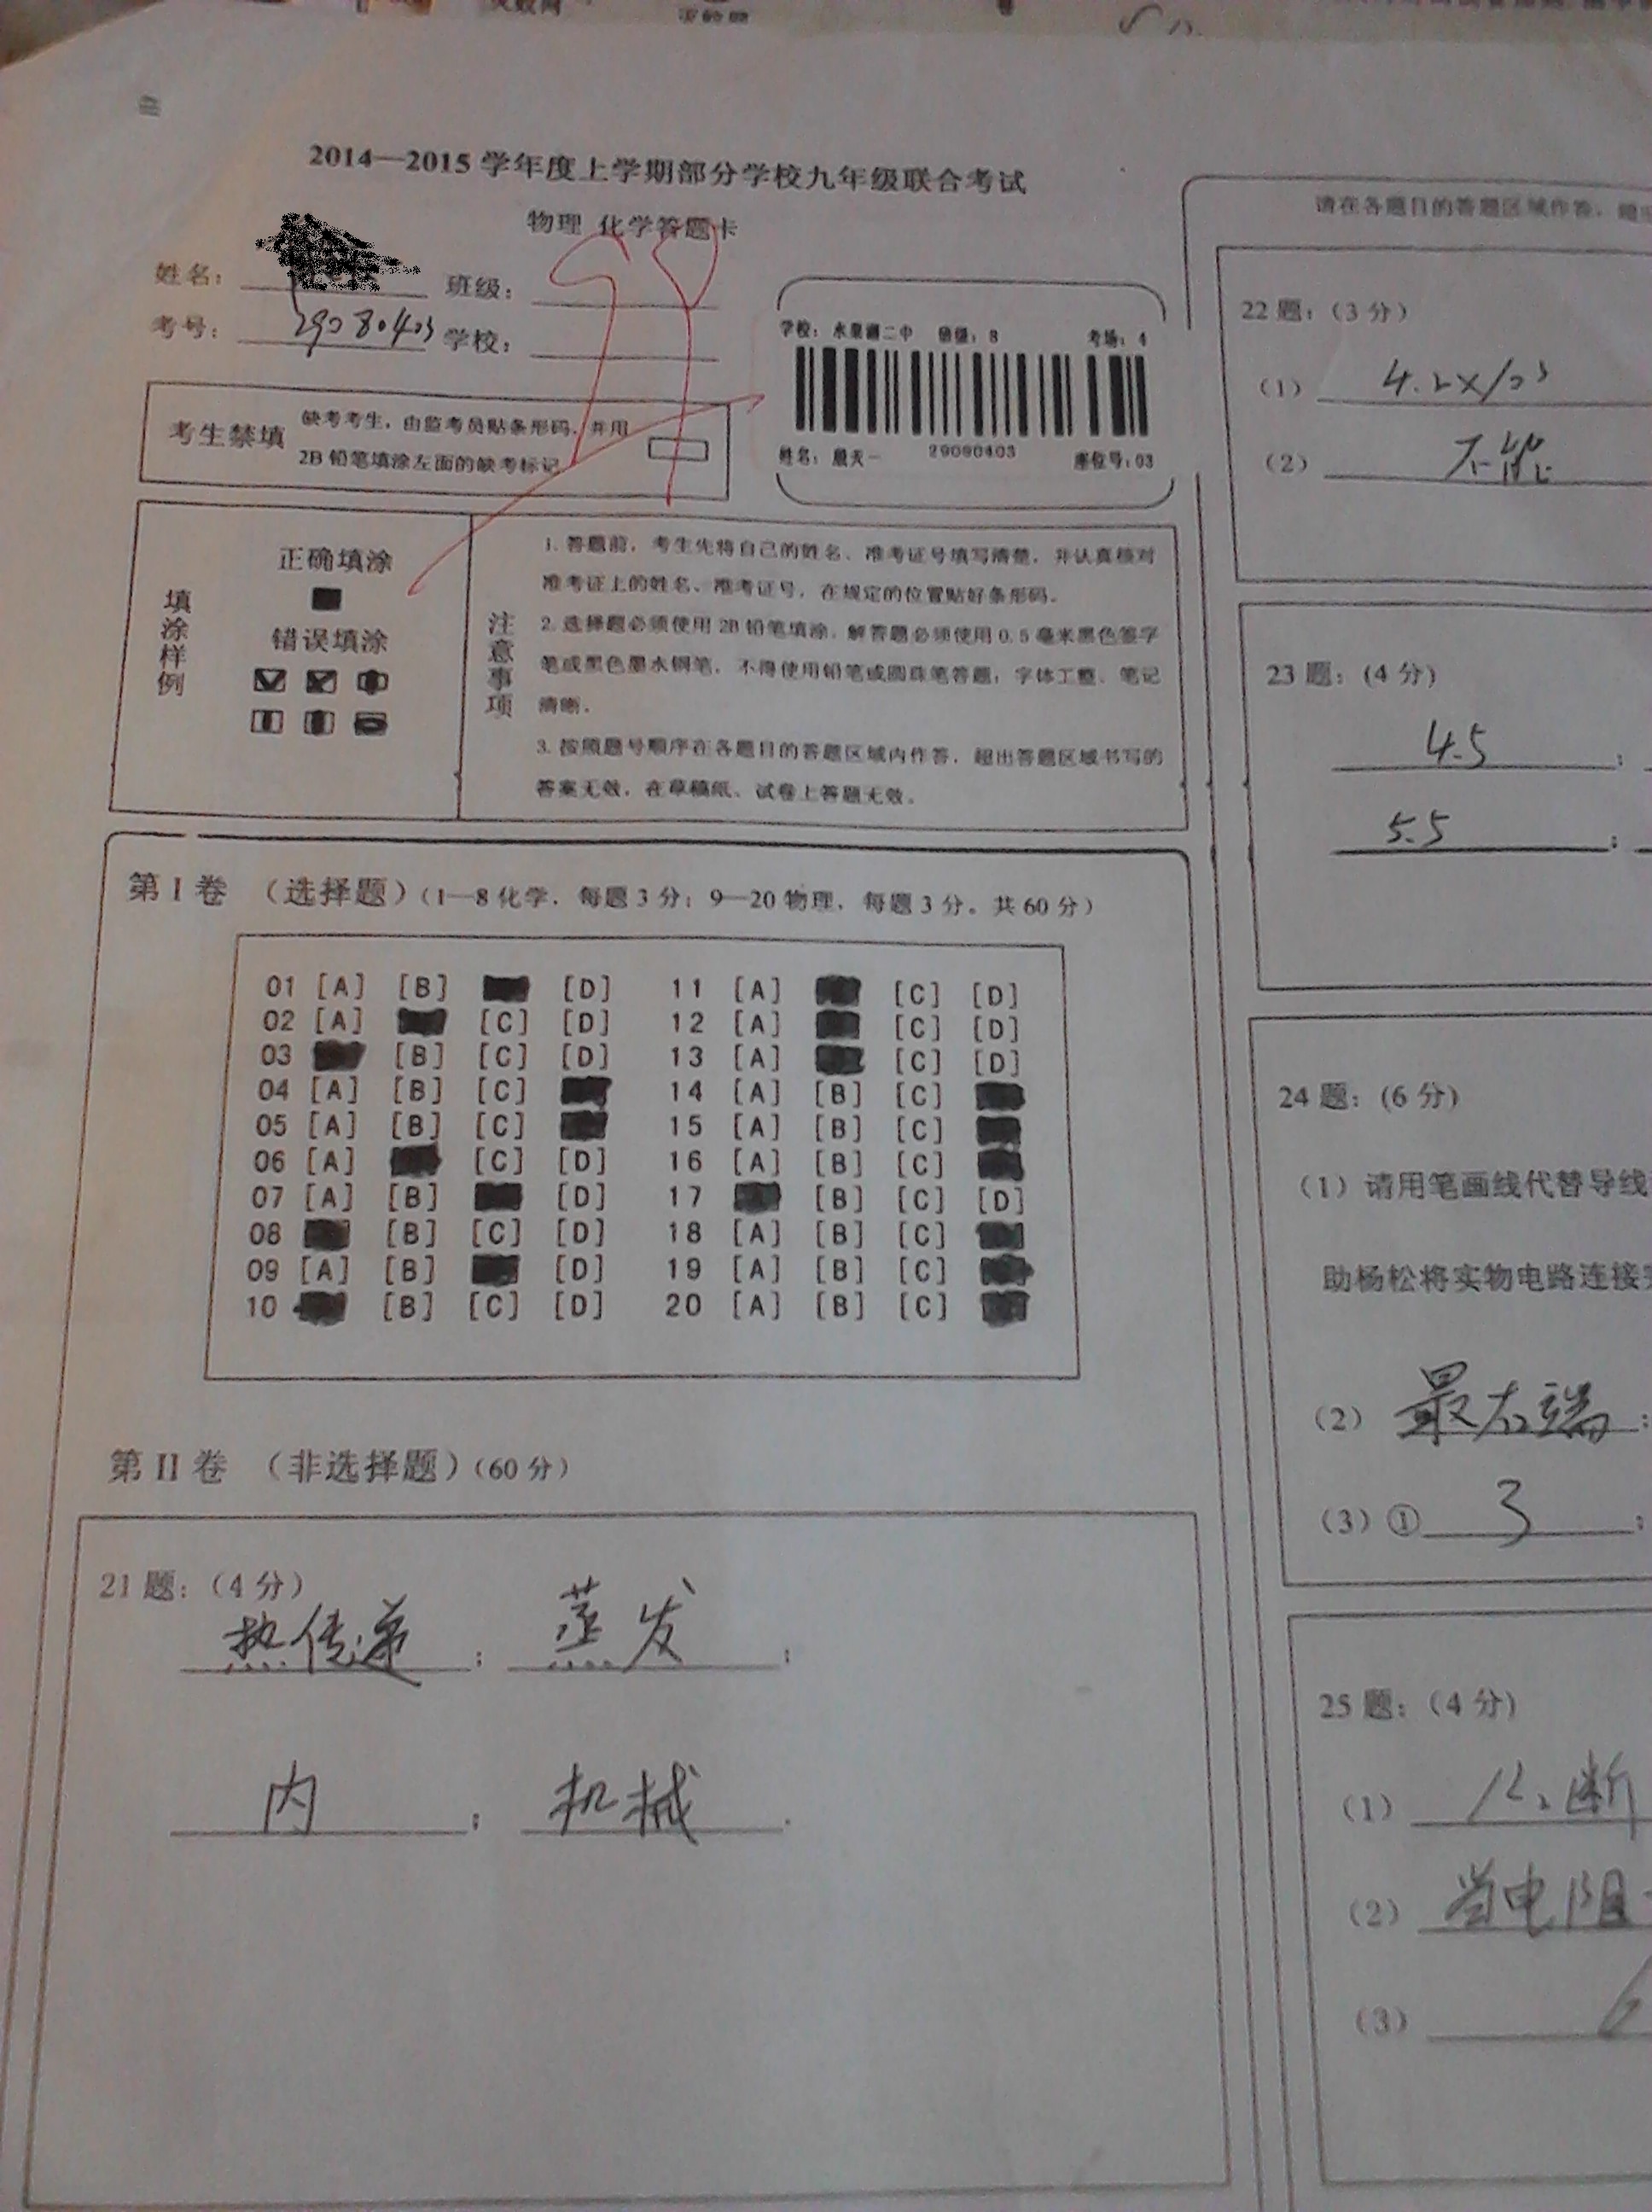 2014—2015 学年度上学期部分学校九年级联合考试
物理 化学答题卡
姓名：
班级：
考号：
学校：
学校：水果湖二中 班级：8 考场：4
姓名： 天一 29080403 座位号：03
考生禁填
缺考考生，由监考员贴条形码，并用
2B 铅笔填涂左面的缺考标记
填涂样例
正确填涂
错误填涂
注意事项
1. 答题前，考生先将自己的姓名、准考证号填写清楚，并认真核对
准考证上的姓名、准考证号，在规定的位置贴好条形码。
2. 选择题必须使用 2B 铅笔填涂，解答题必须使用 0.5 毫米黑色签字
笔或黑色墨水钢笔，不得使用铅笔或圆珠笔答题；字体工整、笔记
清晰。
3. 按照题号顺序在各题目的答题区域内作答，超出答题区域书写的
答案无效，在草稿纸、试卷上答题无效。
第 I 卷 （选择题）（1—8 化学，每题 3 分；9—20 物理，每题 3 分。共 60 分）
01 [A] [B] [D] 11 [A] [C] [D]
02 [A] [C] [D] 12 [A] [C] [D]
03 [B] [C] [D] 13 [A] [C] [D]
04 [A] [B] [C] 14 [A] [B] [C]
05 [A] [B] [C] 15 [A] [B] [C]
06 [A] [C] [D] 16 [A] [B] [C]
07 [A] [B] [D] 17 [B] [C] [D]
08 [B] [C] [D] 18 [A] [B] [C]
09 [A] [B] [D] 19 [A] [B] [C]
10 [B] [C] [D] 20 [A] [B] [C]
第 II 卷 （非选择题）（60 分）
21 题：（4 分）
热传递 ； 蒸发 ；
内 ； 机械 .
请在各题目的答题区域作答，超
22 题：（3 分）
（1） 4.2×10³
（2） 不能
23 题：（4 分）
4.5 ；
5.5 ；
24 题：（6 分）
（1）请用笔画线代替导线
助杨松将实物电路连接
（2） 最右端 ；
（3）① 3 ；
25 题：（4 分）
（1） 断
（2） 当电阻
（3）